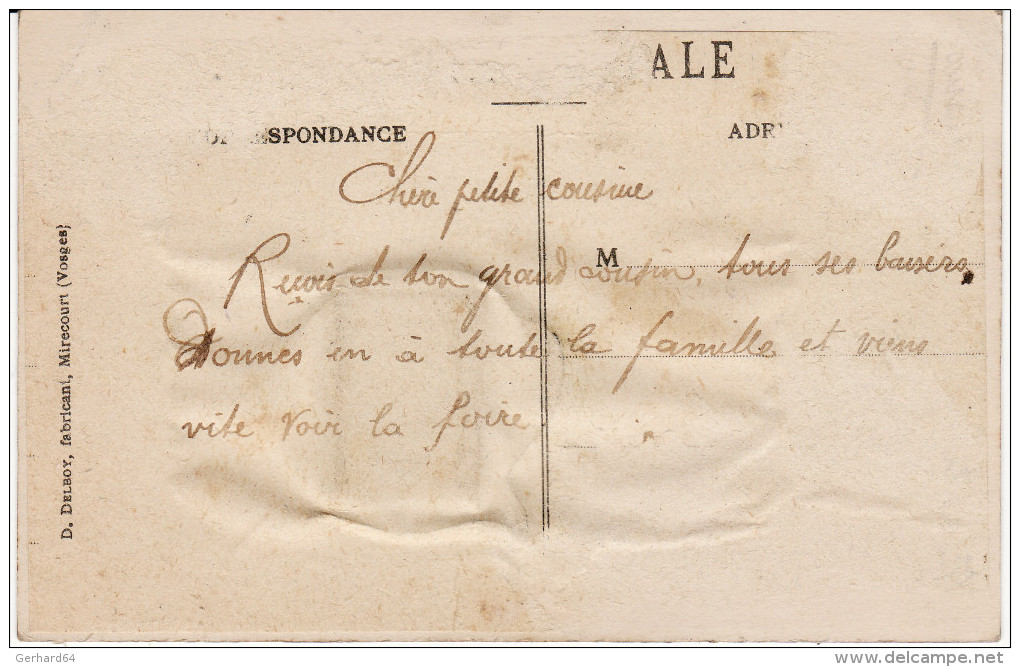 ALE
SPONDANCE
ADR
Chère petite cousine
M
Reçois de ton grand cousin, tous ses baisers,
donnes en à toute la famille et viens
vite voir la foire.
D. DELBOY, fabricant, Mirecourt (Vosges)
Gerhard64
www.delcampe.net